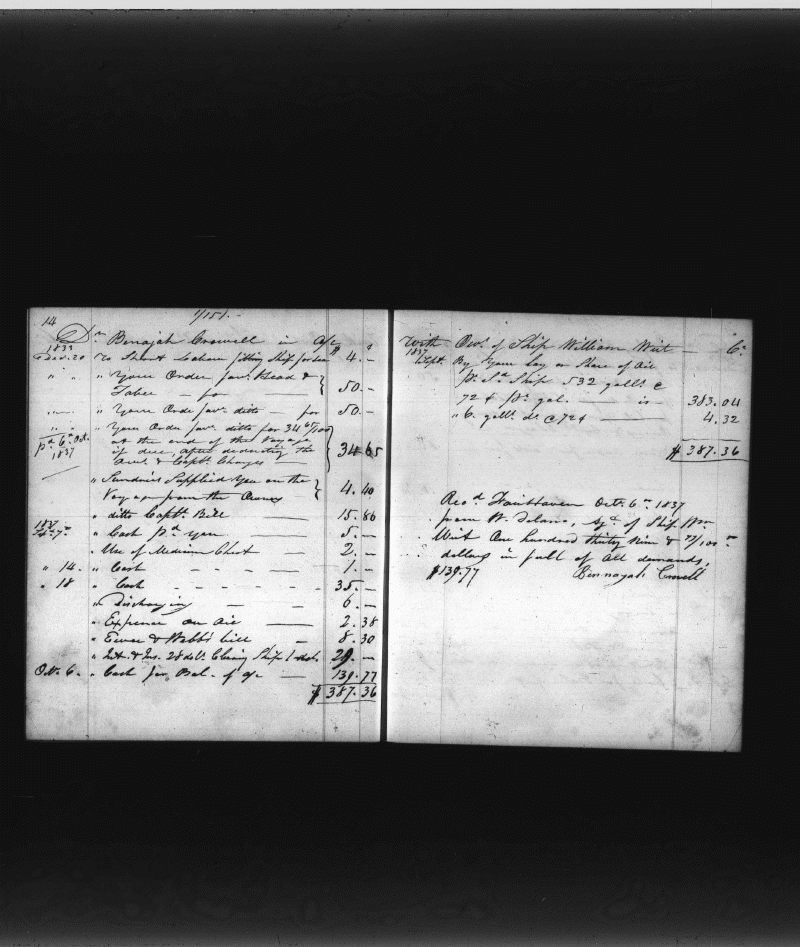 14
1/151.
Dr Benajah Crowell in a/c
1833
Dec. 20 To Short Labour fitting Ship for Sea 4.—
" " " Your Order favr. Head &
Taber — for — 50.—
" Your Order favr. ditto — for 50.—
" " " Your Order favr. ditto for 34 65/100
pd 6th Oct. 1837
at the end of the Voyage
if due, after deducting the
Owrs. & Captn. Charges — 34 65
" Sundries Supplied You on the
Voyage from the Owners 4.40
" ditto Captn. Bill — 15.86
1837
" Cash pd you — 5.—
" Use of Medicine Chest 2.—
" 14. " Cash - - - 1.—
" 18 " Cash - - - 35.—
" Discharging — — 6.—
" Expence on Oil — 2.38
" & Webb's bill — 8.30
" Int. & Ins. Cleaning Ship 29.—
Oct. 6. " Cash for Bal. of a/c — 139.77
$ 387.36
With Owrs. of Ship William Wirt — Cr
1837
Sept. By Your Lay or Share of Oil
pr. Sd Ship 532 galls. @
72 ¢ pr. gal. — is — 383.04
" 6. galls. do @ 72 ¢ — 4.32
$ 387.36
Recd Fairhaven Octr. 6th 1837
from W. Delano, Agt of Ship Wm
Wirt One hundred thirty Nine & 77/100
dollars in full of all demands,
$139.77 Bennajah Crowell